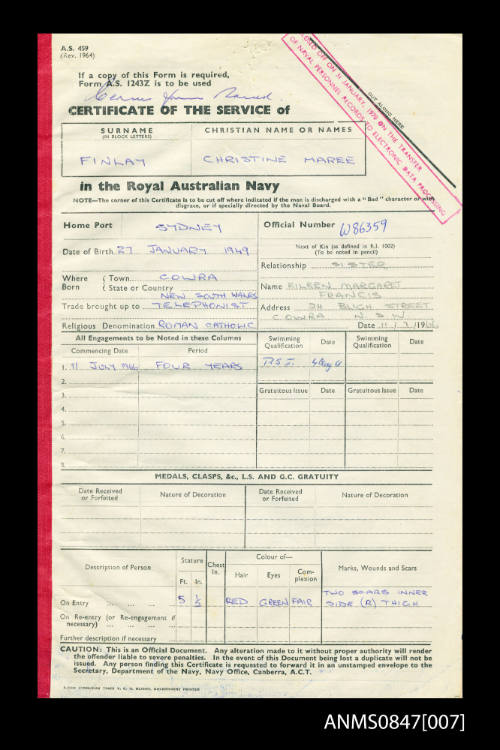 A.S. 459
(Rev. 1964)
If a copy of this Form is required,
Form A.S. 1243Z is to be used
CUT ALONG HERE
OFF ON 31 JANUARY, 1970 ON THE TRANSFER
OF NAVAL PERSONNEL RECORDS TO ELECTRONIC DATA PROCESSING
CERTIFICATE OF THE SERVICE of
SURNAME
(IN BLOCK LETTERS)
CHRISTIAN NAME OR NAMES
FINLAY
CHRISTINE MAREE
in the Royal Australian Navy
NOTE—The corner of this Certificate is to be cut off where indicated if the man is discharged with a "Bad" character or with
disgrace, or if specially directed by the Naval Board.
Home Port SYDNEY
Official Number W86359
Date of Birth 27 JANUARY 1949
Next of Kin (as defined in R.I. 1002)
(To be noted in pencil)
Relationship SISTER
Where Born (Town COWRA
(State or Country NEW SOUTH WALES
Name EILEEN MARGARET
FRANCIS
Trade brought up to TELEPHONIST
Address STREET
COWRA N.S.W
Religious Denomination ROMAN CATHOLIC
Date 11/
All Engagements to be Noted in these Columns
Swimming Qualification Date Swimming Qualification Date
Commencing Date Period
1. 11 JULY 1966 FOUR YEARS
2.
Gratuitous Issue Date Gratuitous Issue Date
3.
4.
5.
6.
7.
8.
MEDALS, CLASPS, &c., L.S. AND G.C. GRATUITY
Date Received or Forfeited Nature of Decoration Date Received or Forfeited Nature of Decoration
Description of Person Stature Chest In. Colour of— Marks, Wounds and Scars
Ft. In. Hair Eyes Complexion
On Entry 5 RED GREEN FAIR TWO SCARS INNER
SIDE (R) THIGH
On Re-entry (or Re-engagement if
necessary)
Further description if necessary
CAUTION: This is an Official Document. Any alteration made to it without proper authority will render
the offender liable to severe penalties. In the event of this Document being lost a duplicate will not be
issued. Any person finding this Certificate is requested to forward it in an unstamped envelope to the
Secretary, Department of the Navy, Navy Office, Canberra, A.C.T.
ANMS0847[007]